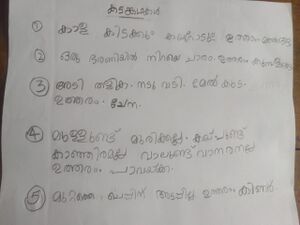 കടങ്കഥകൾ
① കാള കിടക്കും കയറോടും ഉത്തരം
② ഒരു ഭരണിയിൽ നിറയെ ചാരം ഉത്തരം
③ അടി തളിക. നടു വടി. മേൽ കുട.
ഉത്തരം. ചേന.
④ മുള്ളുണ്ട് മുരിക്കല്ല. കയ്പുണ്ട്
കാഞ്ഞിരമല്ല വാലുണ്ട് വാനരനല്ല
ഉത്തരം. പാവയ്ക്ക.
⑤ മുറ്റത്തെ അടപ്പില്ല ഉത്തരം കിണർ.